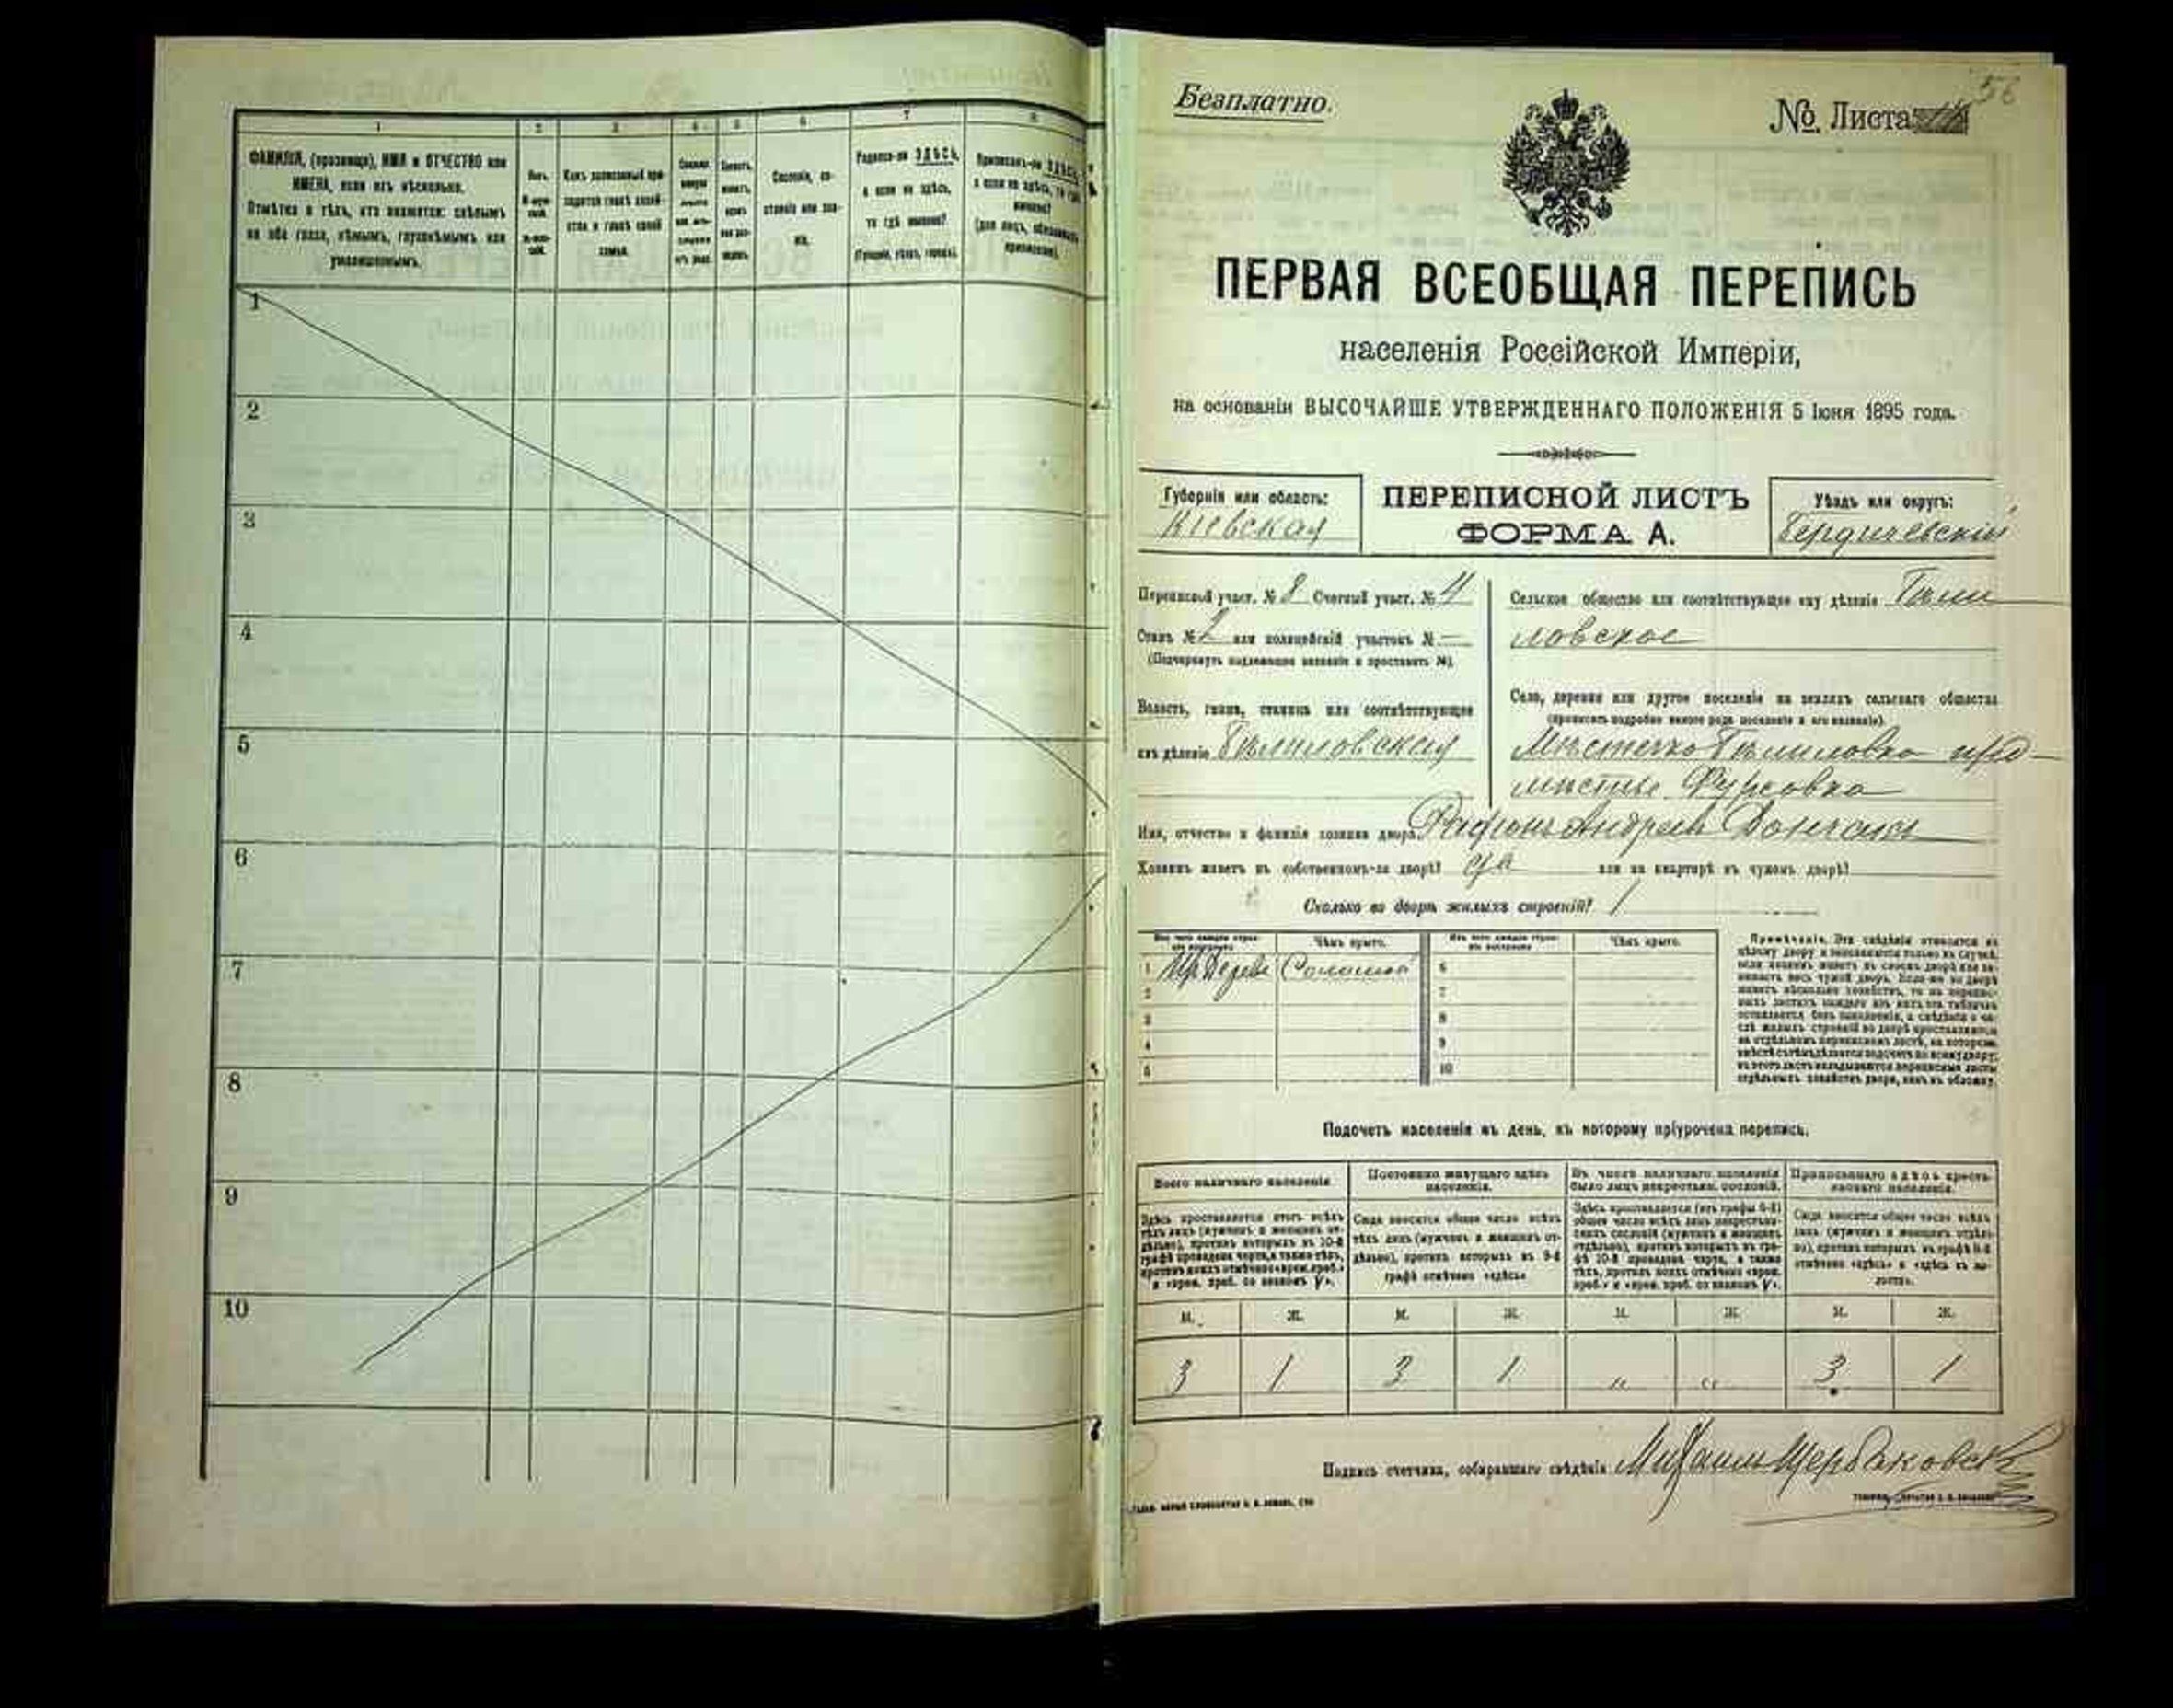 1 2 3 4 5 6 7 8
ФАМИЛІЯ, (прозвище), ИМЯ и ОТЧЕСТВО или
ИМЕНА, если ихъ нѣсколько.
Отмѣтка о тѣхъ, кто окажется: слѣпымъ
на оба глаза, нѣмымъ, глухонѣмымъ или
умалишеннымъ.
Какъ записанный при-
ходится главѣ хозяй-
ства и главѣ своей
семьи.
Сословіе, со-
стояніе или зва-
ніе.
Родился-ли ЗДѢСЬ,
а если не здѣсь,
то гдѣ именно?
(Губернія, уѣздъ, городъ).
Приписанъ-ли ЗДѢСЬ,
а если не здѣсь, то гдѣ
именно?
(для лицъ, обязанныхъ
припискою).
1
2
3
4
5
6
7
8
9
10
56
Безплатно.
№ Листа
ПЕРВАЯ ВСЕОБЩАЯ ПЕРЕПИСЬ
населенія Россійской Имперіи,
на основаніи ВЫСОЧАЙШЕ УТВЕРЖДЕННАГО ПОЛОЖЕНІЯ 5 Іюня 1895 года.
Губернія или область:
Кіевская
ПЕРЕПИСНОЙ ЛИСТЪ
ФОРМА А.
Уѣздъ или округъ:
Бердичевскій
Переписной участ. № 8 Счетный участ. № 4
Станъ № 2 или полицейскій участокъ № —
(Подчеркнуть надлежащее названіе и проставить №).
Волость, гмина, станица или соотвѣтствующее
имъ дѣленіе Бѣлиловская
Сельское общество или соотвѣтствующее ему дѣленіе Бѣли
ловское
Село, деревня или другое поселеніе на земляхъ сельскаго общества
(прописать подробно какого рода поселеніе и его названіе).
Мѣстечко Бѣлиловка пред-
мѣстье Фурсовка
Имя, отчество и фамилія хозяина двора Андреевъ
Хозяинъ живетъ въ собственномъ-ли дворѣ? да или на квартирѣ въ чужомъ дворѣ?
Сколько во дворѣ жилыхъ строеній? 1
Изъ чего каждое строе-
ніе построено Чѣмъ крыто. Изъ чего каждое строе-
ніе построено Чѣмъ крыто.
1 Соломой 6
2 7
3 8
4 9
5 10
Примѣчаніе. Эти свѣдѣнія относятся къ
цѣлому двору и заполняются только въ случаѣ,
если хозяинъ живетъ въ своемъ дворѣ или за-
нимаетъ весь чужой дворъ. Если-же во дворѣ
живетъ нѣсколько хозяйствъ, то на перепис-
ныхъ листахъ каждаго изъ нихъ эта табличка
оставляется безъ заполненія, а свѣдѣнія о чи-
слѣ жилыхъ строеній во дворѣ проставляются
на отдѣльномъ переписномъ листѣ, на которомъ
вмѣстѣ съ тѣмъ дѣлается подсчетъ по всему двору;
въ этотъ листъ вкладываются переписные листы
отдѣльныхъ хозяйствъ двора, какъ въ обложку.
Подсчетъ населенія въ день, къ которому пріурочена перепись.
Всего наличнаго населенія
Постоянно живущаго здѣсь
населенія.
Въ числѣ наличнаго населенія
было лицъ некрестьян. сословій.
Приписаннаго здѣсь кресть-
янскаго населенія.
Здѣсь проставляется итогъ всѣхъ
тѣхъ лицъ (мужчинъ и женщинъ от-
дѣльно), противъ которыхъ въ 10-й
графѣ проведена черта, а также тѣхъ,
противъ коихъ отмѣчено «врем. проб.»
и «врем. проб. со знакомъ V».
Сюда вносится общее число всѣхъ
тѣхъ лицъ (мужчинъ и женщинъ от-
дѣльно), противъ которыхъ въ 9-й
графѣ отмѣчено «здѣсь»
Здѣсь проставляется (изъ графы 6-й)
общее число всѣхъ лицъ некрестьян-
скихъ сословій (мужчинъ и женщинъ
отдѣльно), противъ которыхъ въ гра-
фѣ 10-й проведена черта, а также
тѣхъ, противъ коихъ отмѣчено «врем.
проб.» и «врем. проб. со знакомъ V».
Сюда вносится общее число всѣхъ
лицъ (мужчинъ и женщинъ отдѣль-
но), противъ которыхъ въ графѣ 8-й
отмѣчено «здѣсь» и «здѣсь въ во-
лости».
М. Ж. М. Ж. М. Ж. М. Ж.
3 1 3 1 „ „ 3 1
Подпись счетчика, собиравшаго свѣдѣнія Михаилъ Щербаковскій